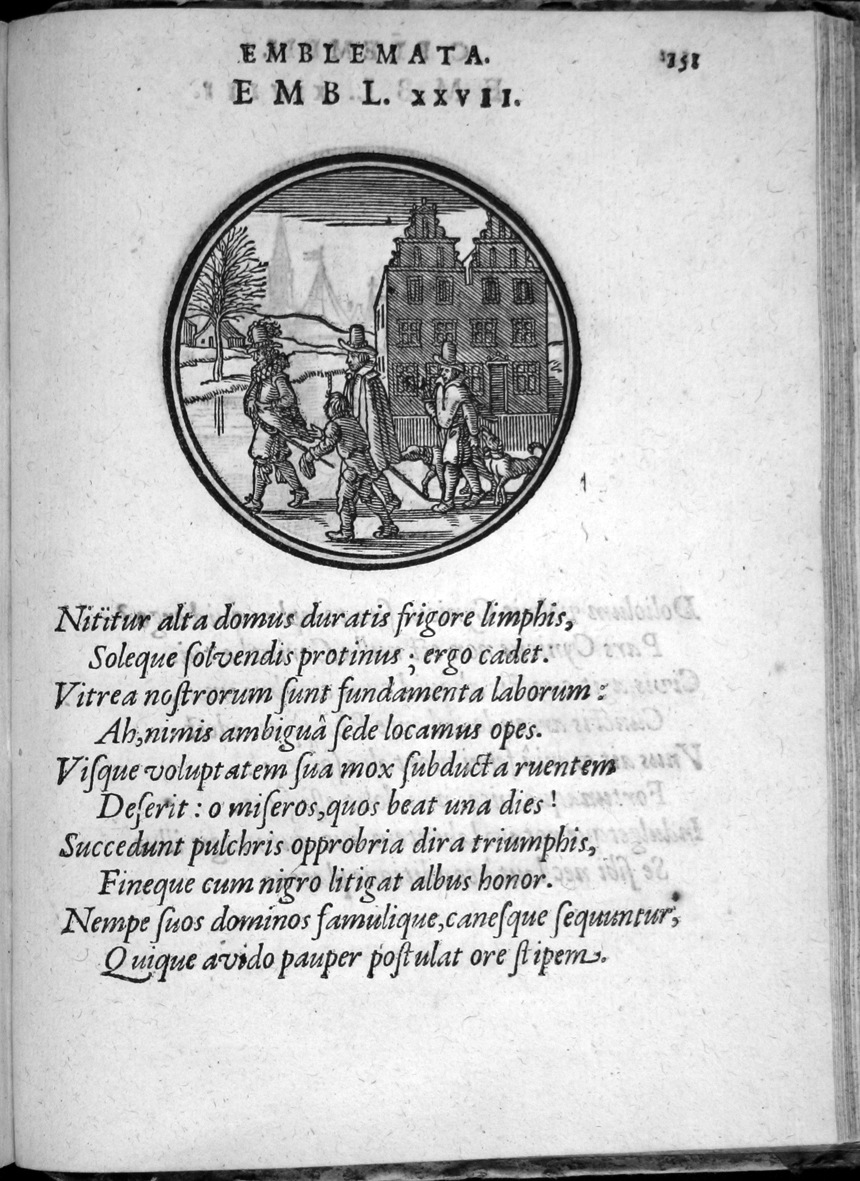 EMBLEMATA. 151
EMBL. XXVII.
Nititur alta domus duratis frigore limphis,
Soleque ſolvendis protinus ; ergo cadet.
Vitrea noſtrorum ſunt fundamenta laborum :
Ah, nimis ambiguâ ſede locamus opes.
Viſque voluptatem ſua mox ſubducta ruentem
Deſerit : o miſeros, quos beat una dies !
Succedunt pulchris opprobria dira triumphis,
Fineque cum nigro litigat albus honor.
Nempe ſuos dominos famulique, caneſque ſequuntur,
Quique avido pauper poſtulat ore ſtipem.